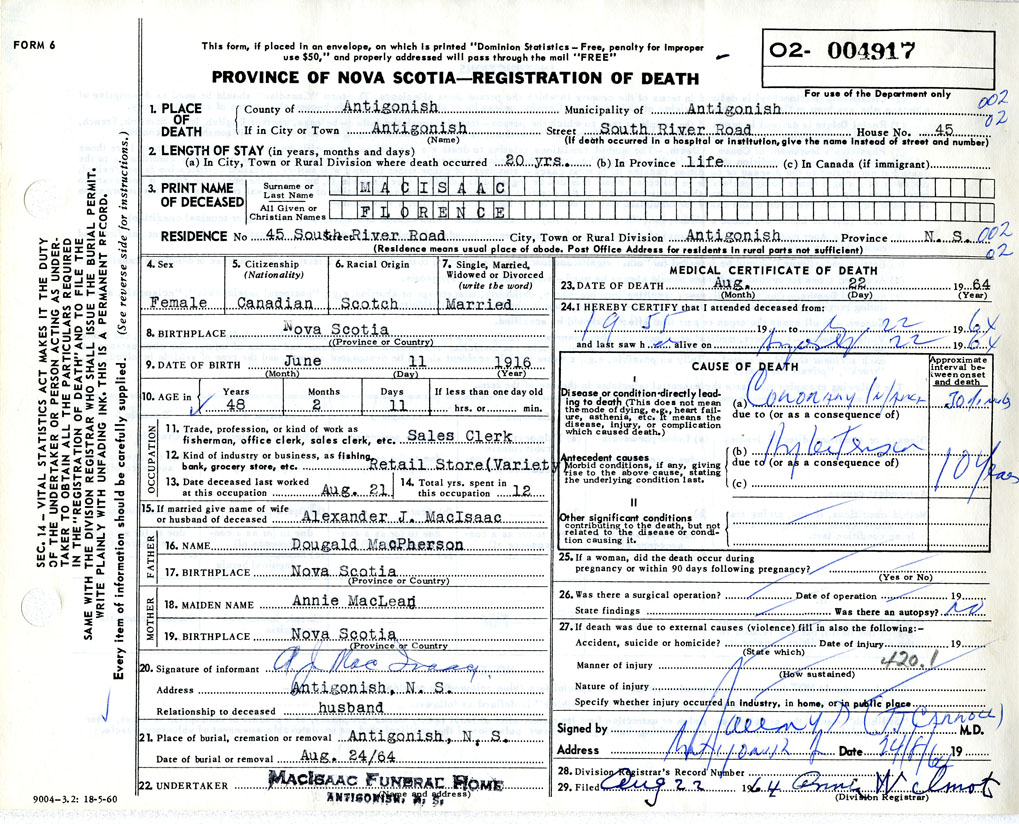 FORM 6
This form, if placed in an envelope, on which is printed "Dominion Statistics – Free, penalty for improper
use $50," and properly addressed will pass through the mail "FREE"
O2- 004917
For use of the Department only
PROVINCE OF NOVA SCOTIA—REGISTRATION OF DEATH
002
02
1. PLACE OF DEATH
County of Antigonish Municipality of Antigonish
If in City or Town Antigonish Street South River Road House No. 45
(Name) (If death occurred in a hospital or institution, give the name instead of street and number)
2. LENGTH OF STAY (in years, months and days)
(a) In City, Town or Rural Division where death occurred 20 yrs. (b) In Province life (c) In Canada (if immigrant)
3. PRINT NAME OF DECEASED
Surname or Last Name MACISAAC
All Given or Christian Names FLORENCE
RESIDENCE No 45 South River Road Street City, Town or Rural Division Antigonish Province N. S. 002
02
(Residence means usual place of abode. Post Office Address for residents in rural parts not sufficient)
4. Sex
Female
5. Citizenship (Nationality)
Canadian
6. Racial Origin
Scotch
7. Single, Married, Widowed or Divorced (write the word)
Married
8. BIRTHPLACE Nova Scotia
(Province or Country)
9. DATE OF BIRTH June 11 1916
(Month) (Day) (Year)
10. AGE in Years Months Days If less than one day old
48 2 11 hrs. or min.
OCCUPATION
11. Trade, profession, or kind of work as
fisherman, office clerk, sales clerk, etc. Sales Clerk
12. Kind of industry or business, as fishing,
bank, grocery store, etc. Retail Store(Variety
13. Date deceased last worked
at this occupation Aug. 21
14. Total yrs. spent in
this occupation 12
15. If married give name of wife
or husband of deceased Alexander J. MacIsaac
FATHER
16. NAME Dougald MacPherson
17. BIRTHPLACE Nova Scotia
(Province or Country)
MOTHER
18. MAIDEN NAME Annie MacLean
19. BIRTHPLACE Nova Scotia
(Province or Country)
20. Signature of informant A J Mac Isaac
Address Antigonish, N. S.
Relationship to deceased husband
21. Place of burial, cremation or removal Antigonish, N. S.
Date of burial or removal Aug. 24/64
22. UNDERTAKER MACISAAC FUNERAL HOME
(Name and address)
ANTIGONISH, N. S.
9004–3.2: 18-5-60
MEDICAL CERTIFICATE OF DEATH
23. DATE OF DEATH Aug. 22 19 64
(Month) (Day) (Year)
24. I HEREBY CERTIFY that I attended deceased from:
1955 19 to 22 19 64
and last saw h er alive on August 22 19 64
CAUSE OF DEATH
Approximate interval between onset and death
I
Disease or condition directly leading to death (This does not mean the mode of dying, e.g., heart failure, asthenia, etc. It means the disease, injury, or complication which caused death.)
(a) Coronary Infarct
due to (or as a consequence of)
Antecedent causes
Morbid conditions, if any, giving rise to the above cause, stating the underlying condition last.
(b) Hypertension
due to (or as a consequence of)
10 Years
(c)
II
Other significant conditions
contributing to the death, but not related to the disease or condition causing it.
25. If a woman, did the death occur during
pregnancy or within 90 days following pregnancy?
(Yes or No)
26. Was there a surgical operation? Date of operation 19
State findings Was there an autopsy? No
27. If death was due to external causes (violence) fill in also the following:–
Accident, suicide or homicide? Date of injury 19
(State which)
420.1
Manner of injury
(How sustained)
Nature of injury
Specify whether injury occurred in industry, in home, or in public place
Signed by M.D.
Address Antigonish Date 24/8/64 19
28. Division Registrar's Record Number
29. Filed Aug 22 1964 Annie Wilmot
(Division Registrar)
SEC. 14 – VITAL STATISTICS ACT MAKES IT THE DUTY
OF THE UNDERTAKER OR PERSON ACTING AS UNDER-
TAKER TO OBTAIN ALL THE PARTICULARS REQUIRED
IN THE "REGISTRATION OF DEATH" AND TO FILE THE
SAME WITH THE DIVISION REGISTRAR WHO SHALL ISSUE THE BURIAL PERMIT.
WRITE PLAINLY WITH UNFADING INK. THIS IS A PERMANENT RECORD.
Every item of information should be carefully supplied. (See reverse side for instructions.)